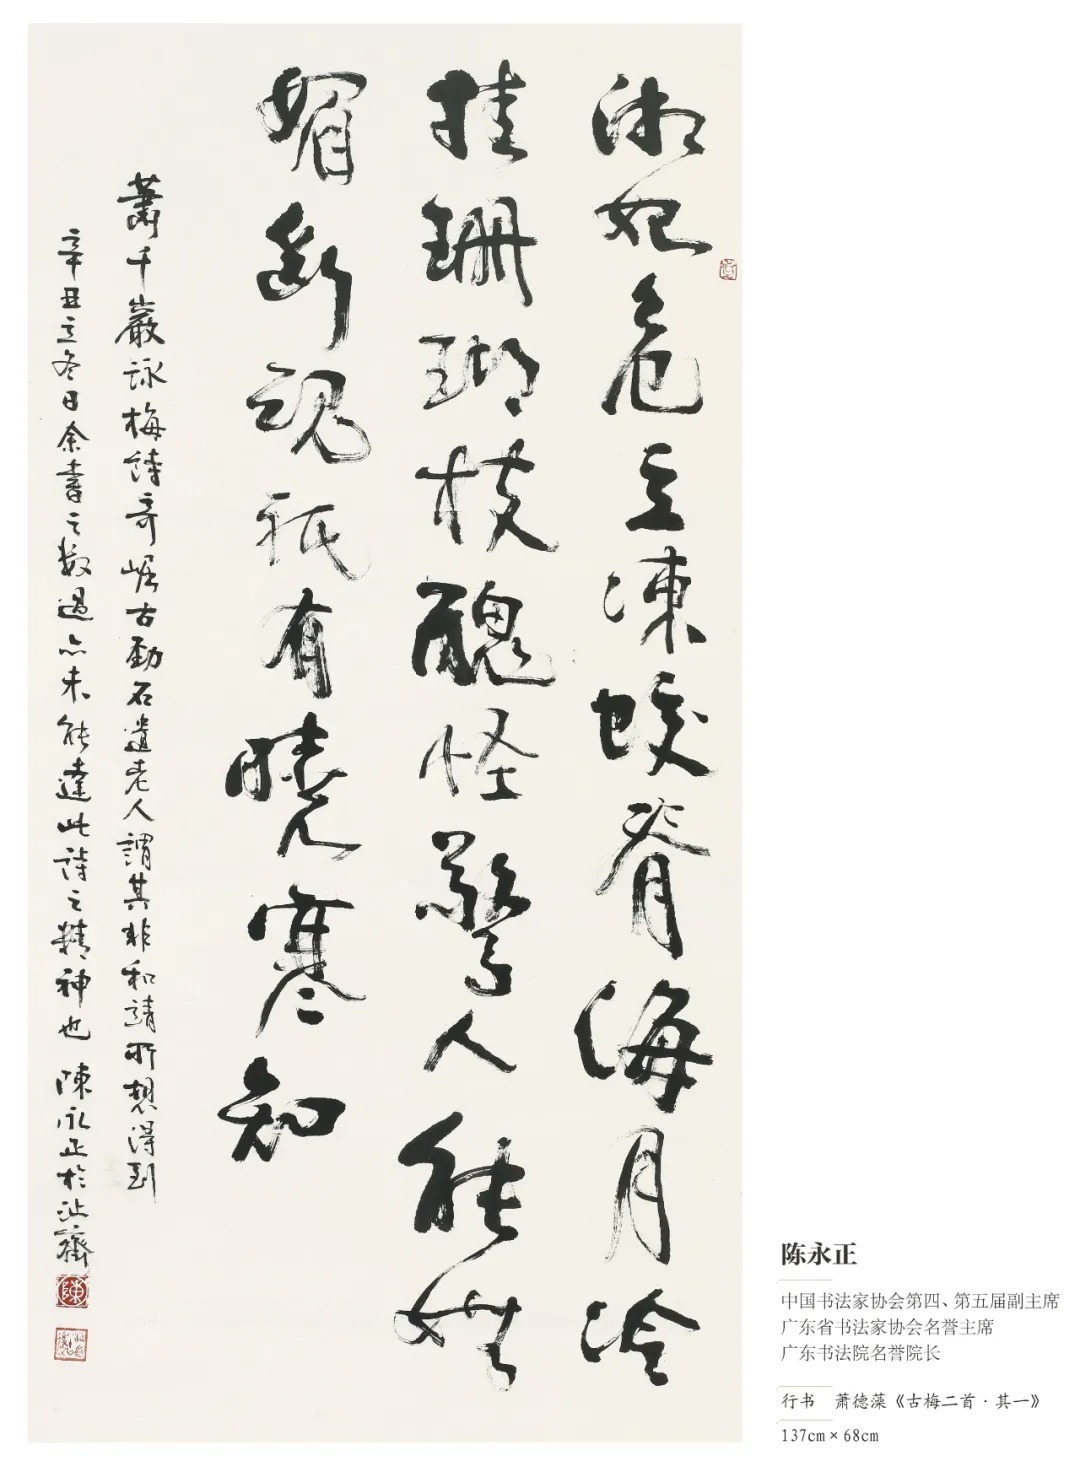 湘妃危立凍蛟脊海月冷
挂珊瑚枝醜怪驚人能嫵
媚斷魂祇有曉寒知
蕭千巖詠梅詩奇崛古勁石遺老人謂其非和靖所想得到
辛丑立冬日余書之數過亦未能達此詩之精神也 陳永正於沚齋
陳
陈永正
中国书法家协会第四、第五届副主席
广东省书法家协会名誉主席
广东书法院名誉院长
行书 萧德藻《古梅二首·其一》
137cm×68cm